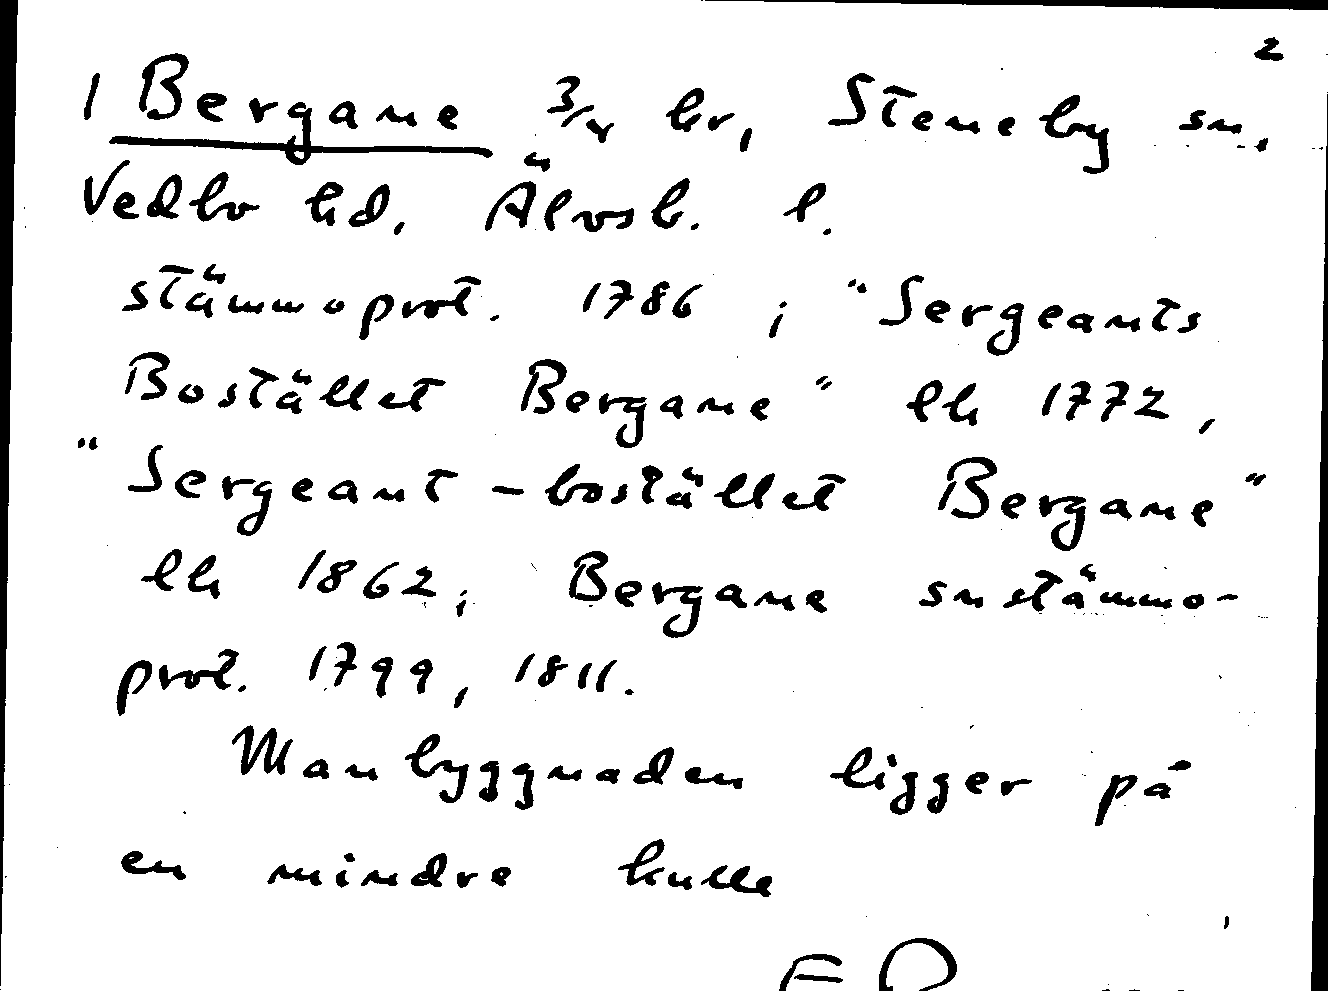 2
1 Bergane 3/4 kr, Steneby sn,
Vedbo hd, Älvsb. l.
stämmoprot. 1786 ; "Sergeants
Bostället Bergane" lh 1772,
"Sergeant-bostället Bergane"
lh 1862; Bergane snstämmo-
prot. 1799, 1811.
Manbyggnaden ligger på
en mindre kulle